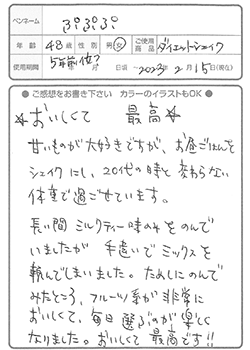 ペンネーム ぷぷぷぷ
年齢 48歳 性別 男・女 ご使用商品 ダイエットシェイク
使用期間 5年前位? 日頃 〜2023年2月15日(現在)
●ご感想をお書き下さい カラーのイラストもOK●
★おいしくて 最高★
甘いものが大好きですが、お昼ごはんを
シェイクにし、20代の時と変わらない
体重で過ごせています。
長い間 ミルクティー味のみをのんで
いましたが 手違いでミックスを
頼んでしまいました。ためしにのんで
みたところ、フルーツ系が非常に
おいしくて、毎日選ぶのが楽しく
なりました。おいしくて最高です!!